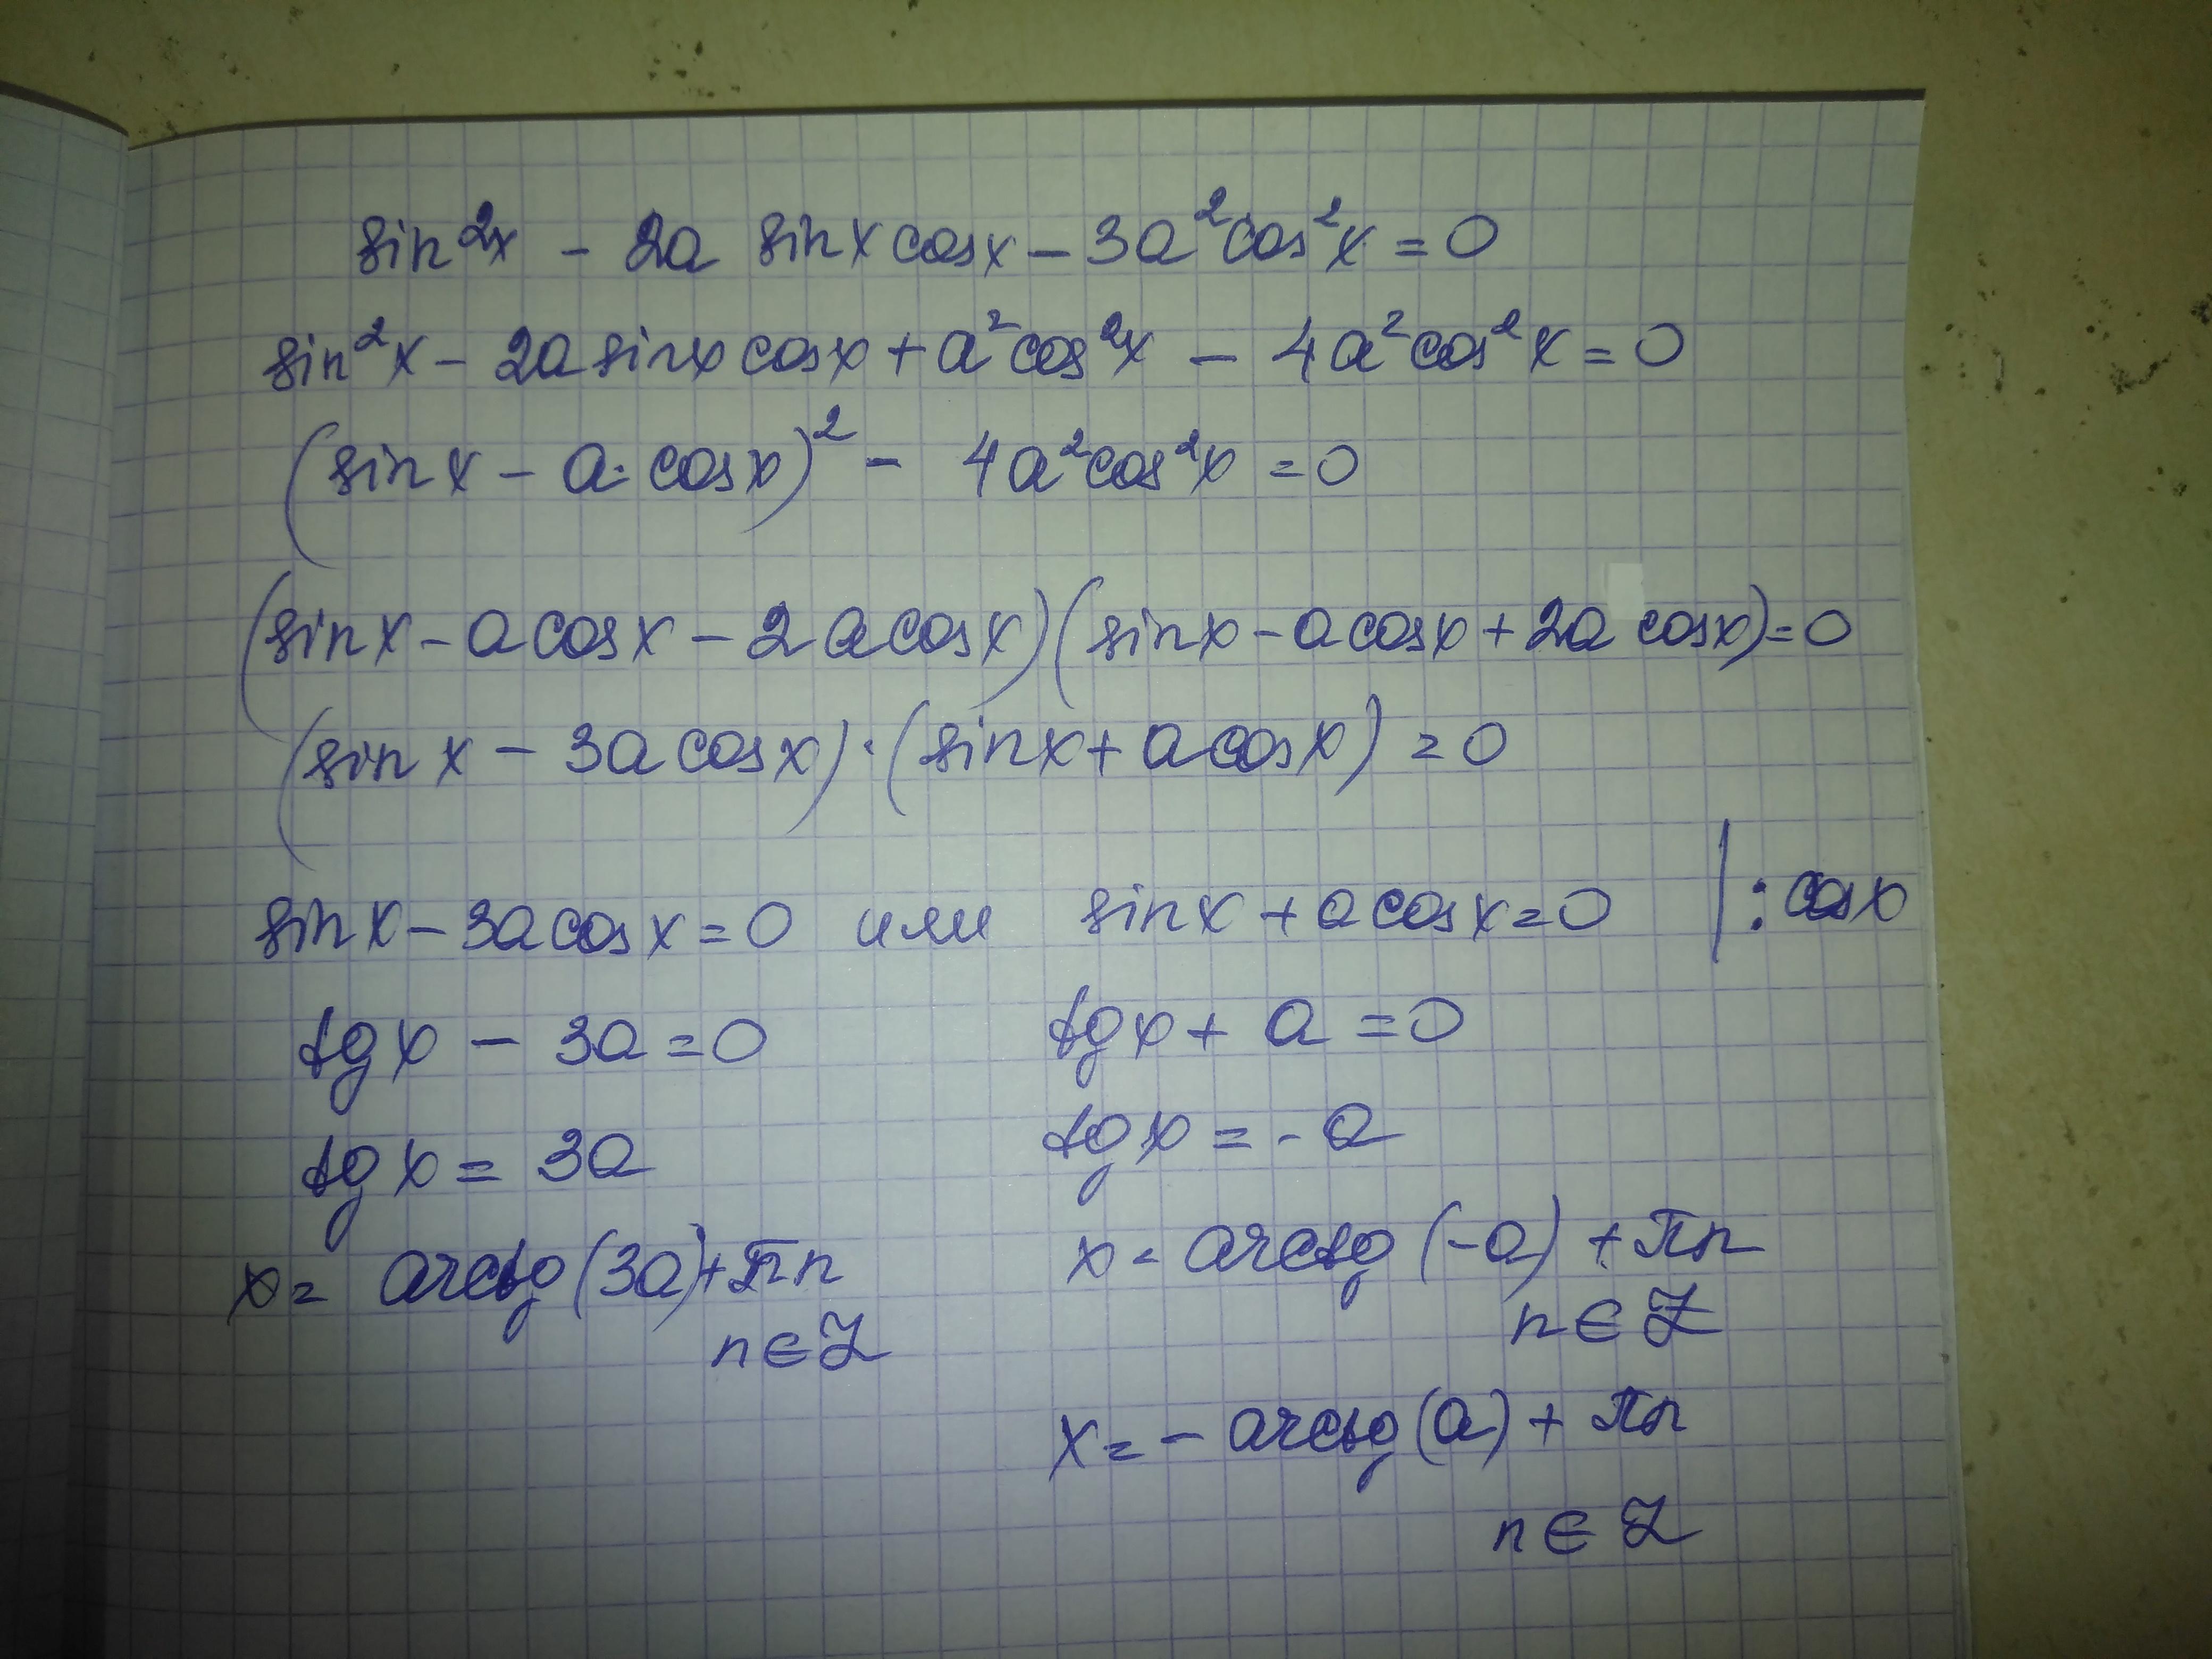 sin²x - 2a sinx cosx - 3a²cos²x = 0
sin²x - 2a sinx cosx + a²cos²x - 4a²cos²x = 0
(sinx - a·cosx)² - 4a²cos²x = 0
(sinx - a cosx - 2a cosx)(sinx - a cosx + 2a cosx) = 0
(sin x - 3a cosx)·(sinx + a cosx) = 0
sinx - 3a cosx = 0 или sinx + a cosx = 0 | : cosx
tgx - 3a = 0 tgx + a = 0
tgx = 3a tgx = -a
x = arctg(3a) + πn x = arctg(-a) + πn
n∈Z n∈Z
x = - arctg(a) + πn
n∈Z